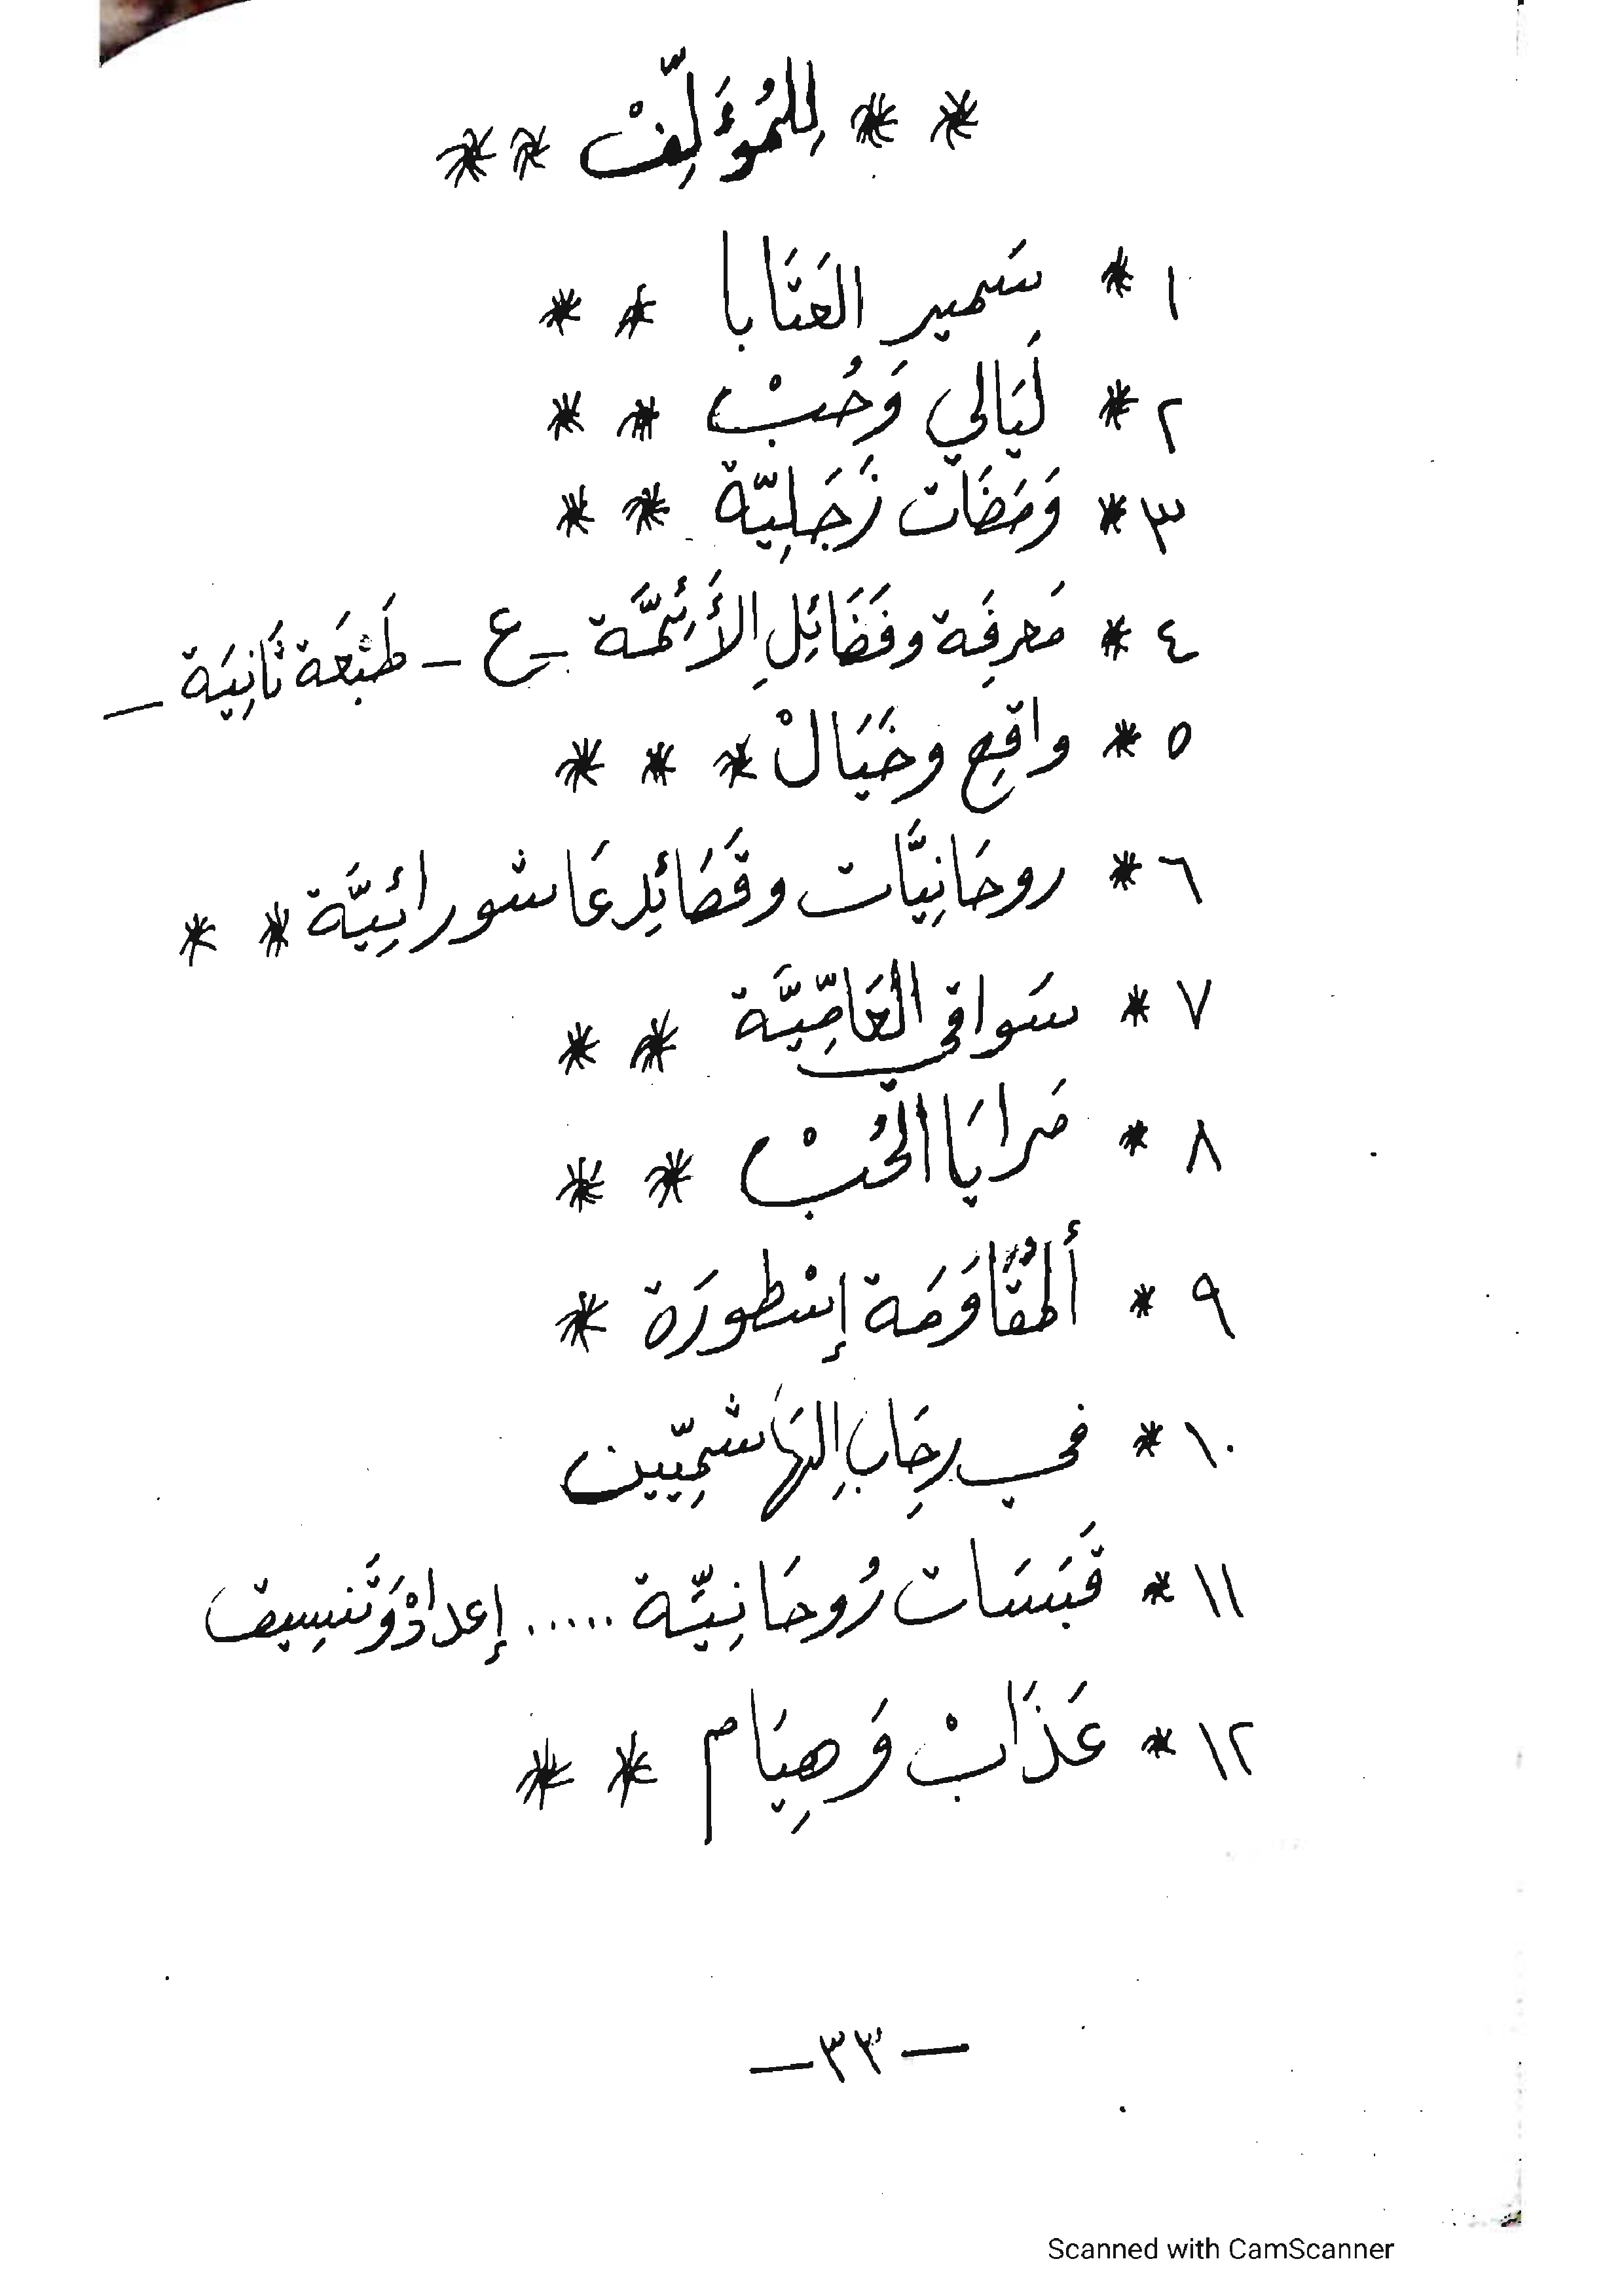 * * لِلمُؤَلِّفْ * *
١ * سَمير العَتَابا * *
٢ * لَيَالي وَحُبْ * *
٣ * وَمَضَات زَجَلِيّة * *
٤ * مَعرِفَة وفَضَائِلِ الأَئِمَّة _ع_ طَبْعَة ثَانِيَة _
٥ * واقِع وخَيَالْ * * *
٦ * روحَانِيَّات وقَصَائِد عَاشورائِيَّة * *
٧ * سَواقي العَامِّيَّة * *
٨ * مَرايَا الحُبْ * *
٩ * ألمُقَاوَمَة إسْطورَة *
١٠ * في رِحَابِ الهَاشِمِيّين
١١ * قَبَسَات رُوحَانِيّة ..... إعدادْ وَتَنسِيق
١٢ * عَذَابْ وَهِيَام * *
— ٣٣ —
Scanned with CamScanner